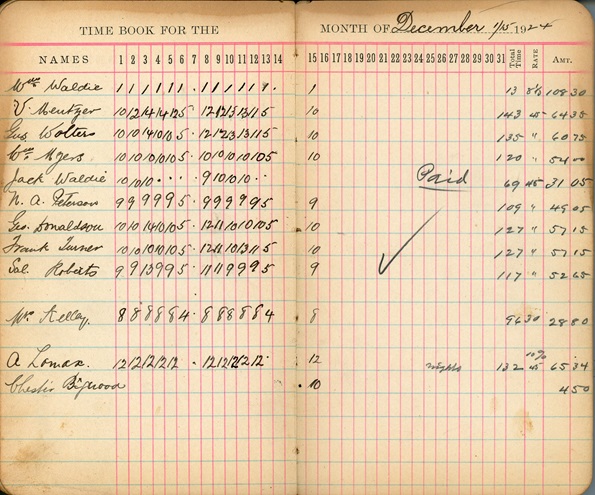 TIME BOOK FOR THE MONTH OF December 1/15 1924
NAMES 1 2 3 4 5 6 7 8 9 10 11 12 13 14 15 16 17 18 19 20 21 22 23 24 25 26 27 28 29 30 31 Total Time RATE AMT.
Wm Waldie 1 1 1 1 1 1 . 1 1 1 1 1 1 . 1 13 8 1/3 108 30
V. Mentzer 10 12 14 14 12 5 . 12 12 15 13 11 5 10 143 45 64 35
Gus Wolters 10 10 14 10 10 5 . 12 12 23 13 11 5 10 135 " 60 75
Wm Myers 10 10 10 10 10 5 . 10 10 10 10 10 5 10 120 " 54 00
Jack Waldie 10 10 10 . . . . 9 10 10 10 . . Paid 69 45 31 05
N. A. Peterson 9 9 9 9 9 5 . 9 9 9 9 9 5 9 109 " 49 05
Geo. Donaldson 10 10 14 10 10 5 . 12 11 10 10 10 5 10 127 " 57 15
Frank Turner 10 10 10 10 10 5 . 12 11 10 13 11 5 10 127 " 57 15
Sol. Roberts 9 9 13 9 9 5 . 11 11 9 9 9 5 9 117 " 52 65
Mr Kelley. 8 8 8 8 8 4 . 8 8 8 8 8 4 8 96 30 28 80
10%
A Lomax. 12 12 12 12 12 . 12 12 12 12 12 . 12 nights 132 45 65 34
Chester Bigwood . 10 4 50